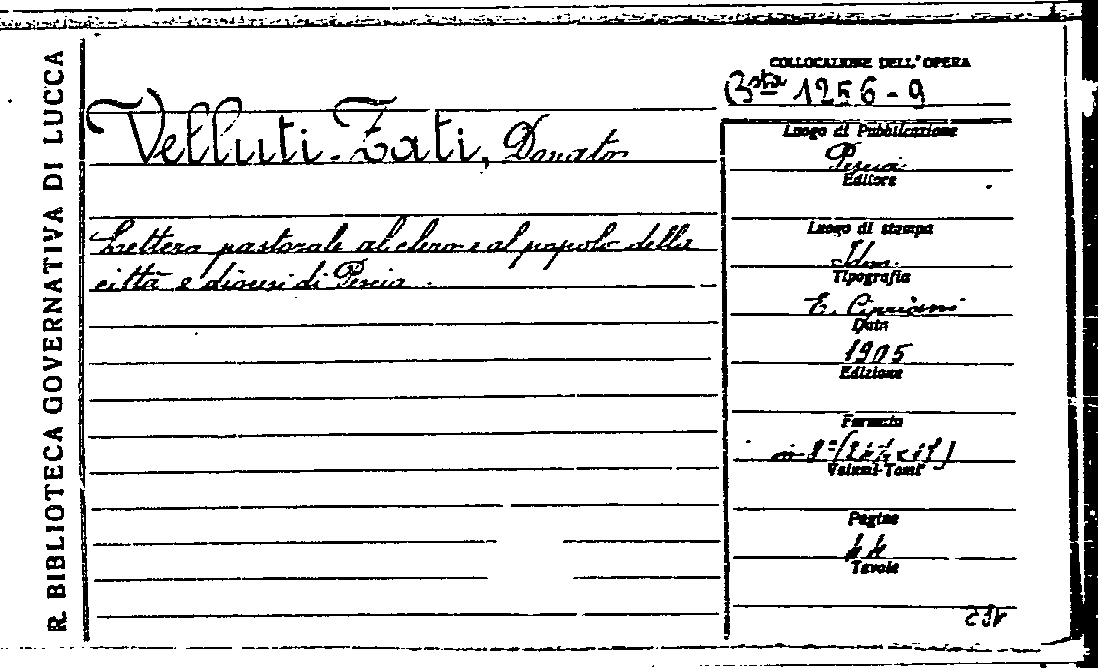 R. BIBLIOTECA GOVERNATIVA DI LUCCA
COLLOCAZIONE DELL'OPERA
Bsta 1256-9
Velluti-Zati, Donato
Lettera pastorale al clero e al popolo della
città e diocesi di Pescia.
Luogo di Pubblicazione
Pescia
Editore
Luogo di stampa
Idem.
Tipografia
E. Cipriani
Data
1905
Edizione
Formato
in 8°
Volumi-Tomi
Pagine
44
Tavole